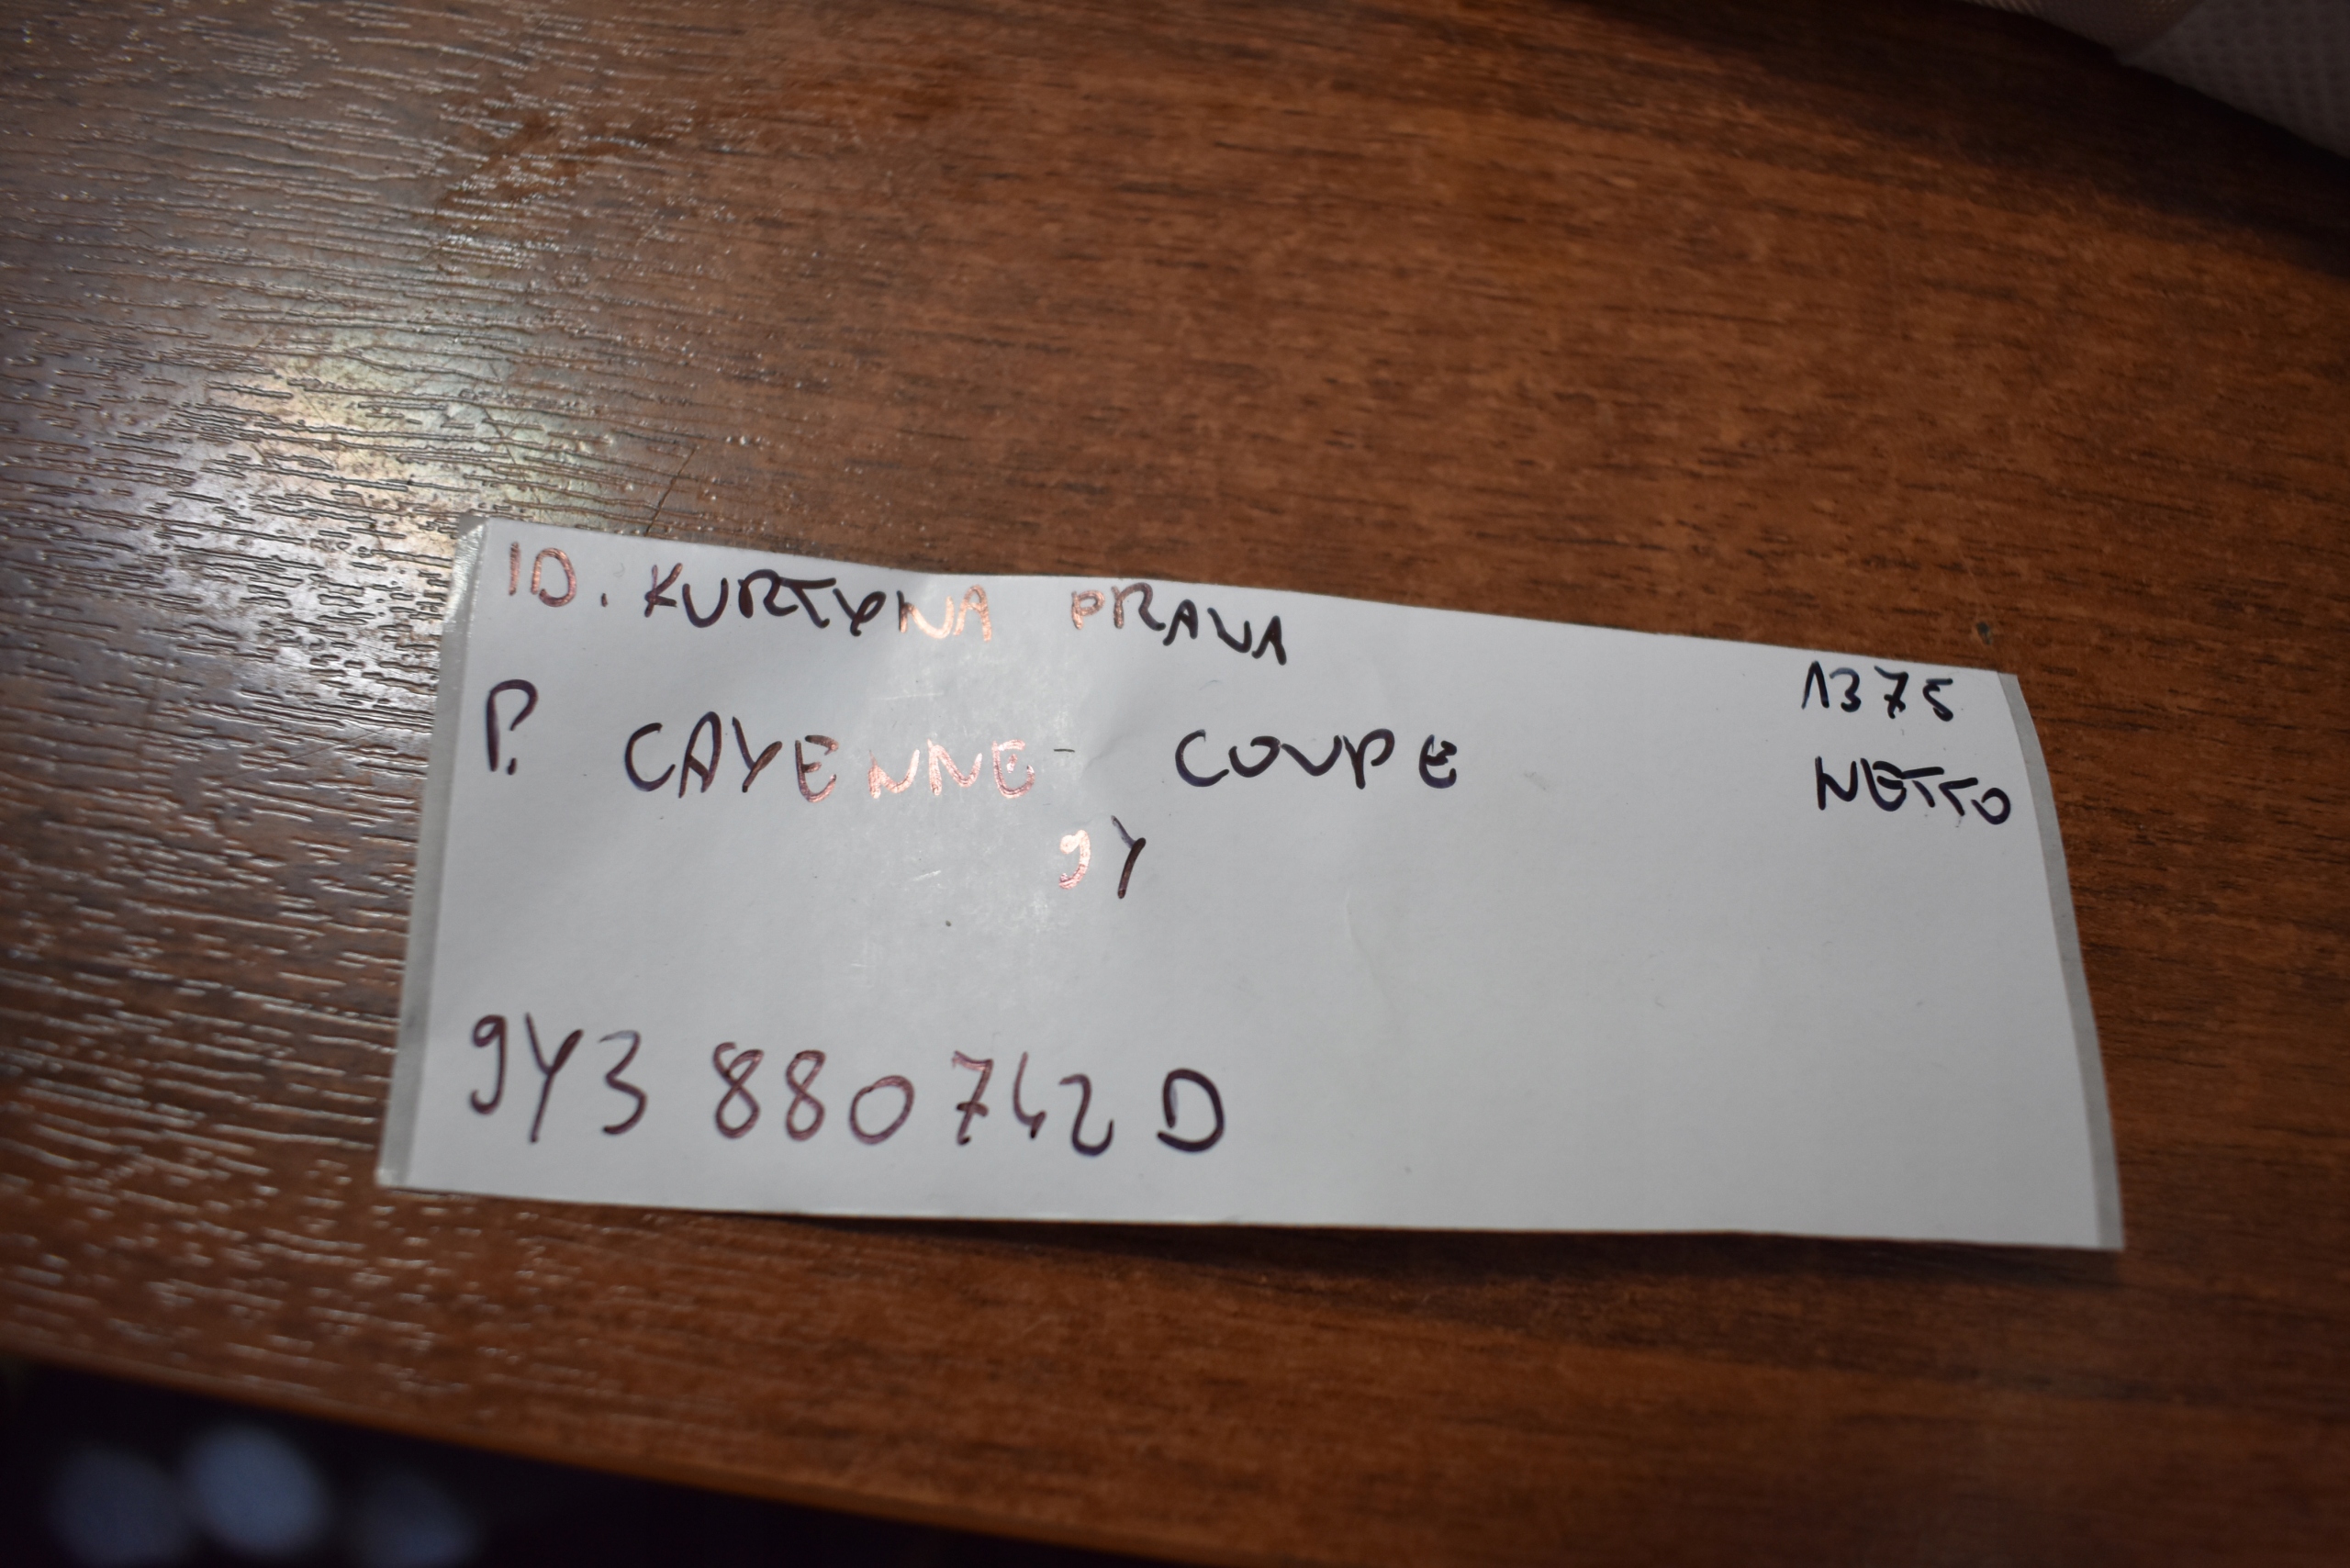 10. KURTYNA PRAWA
P. CAYENNE - COUPE
9Y
1375
NETTO
9Y3 880 742 D